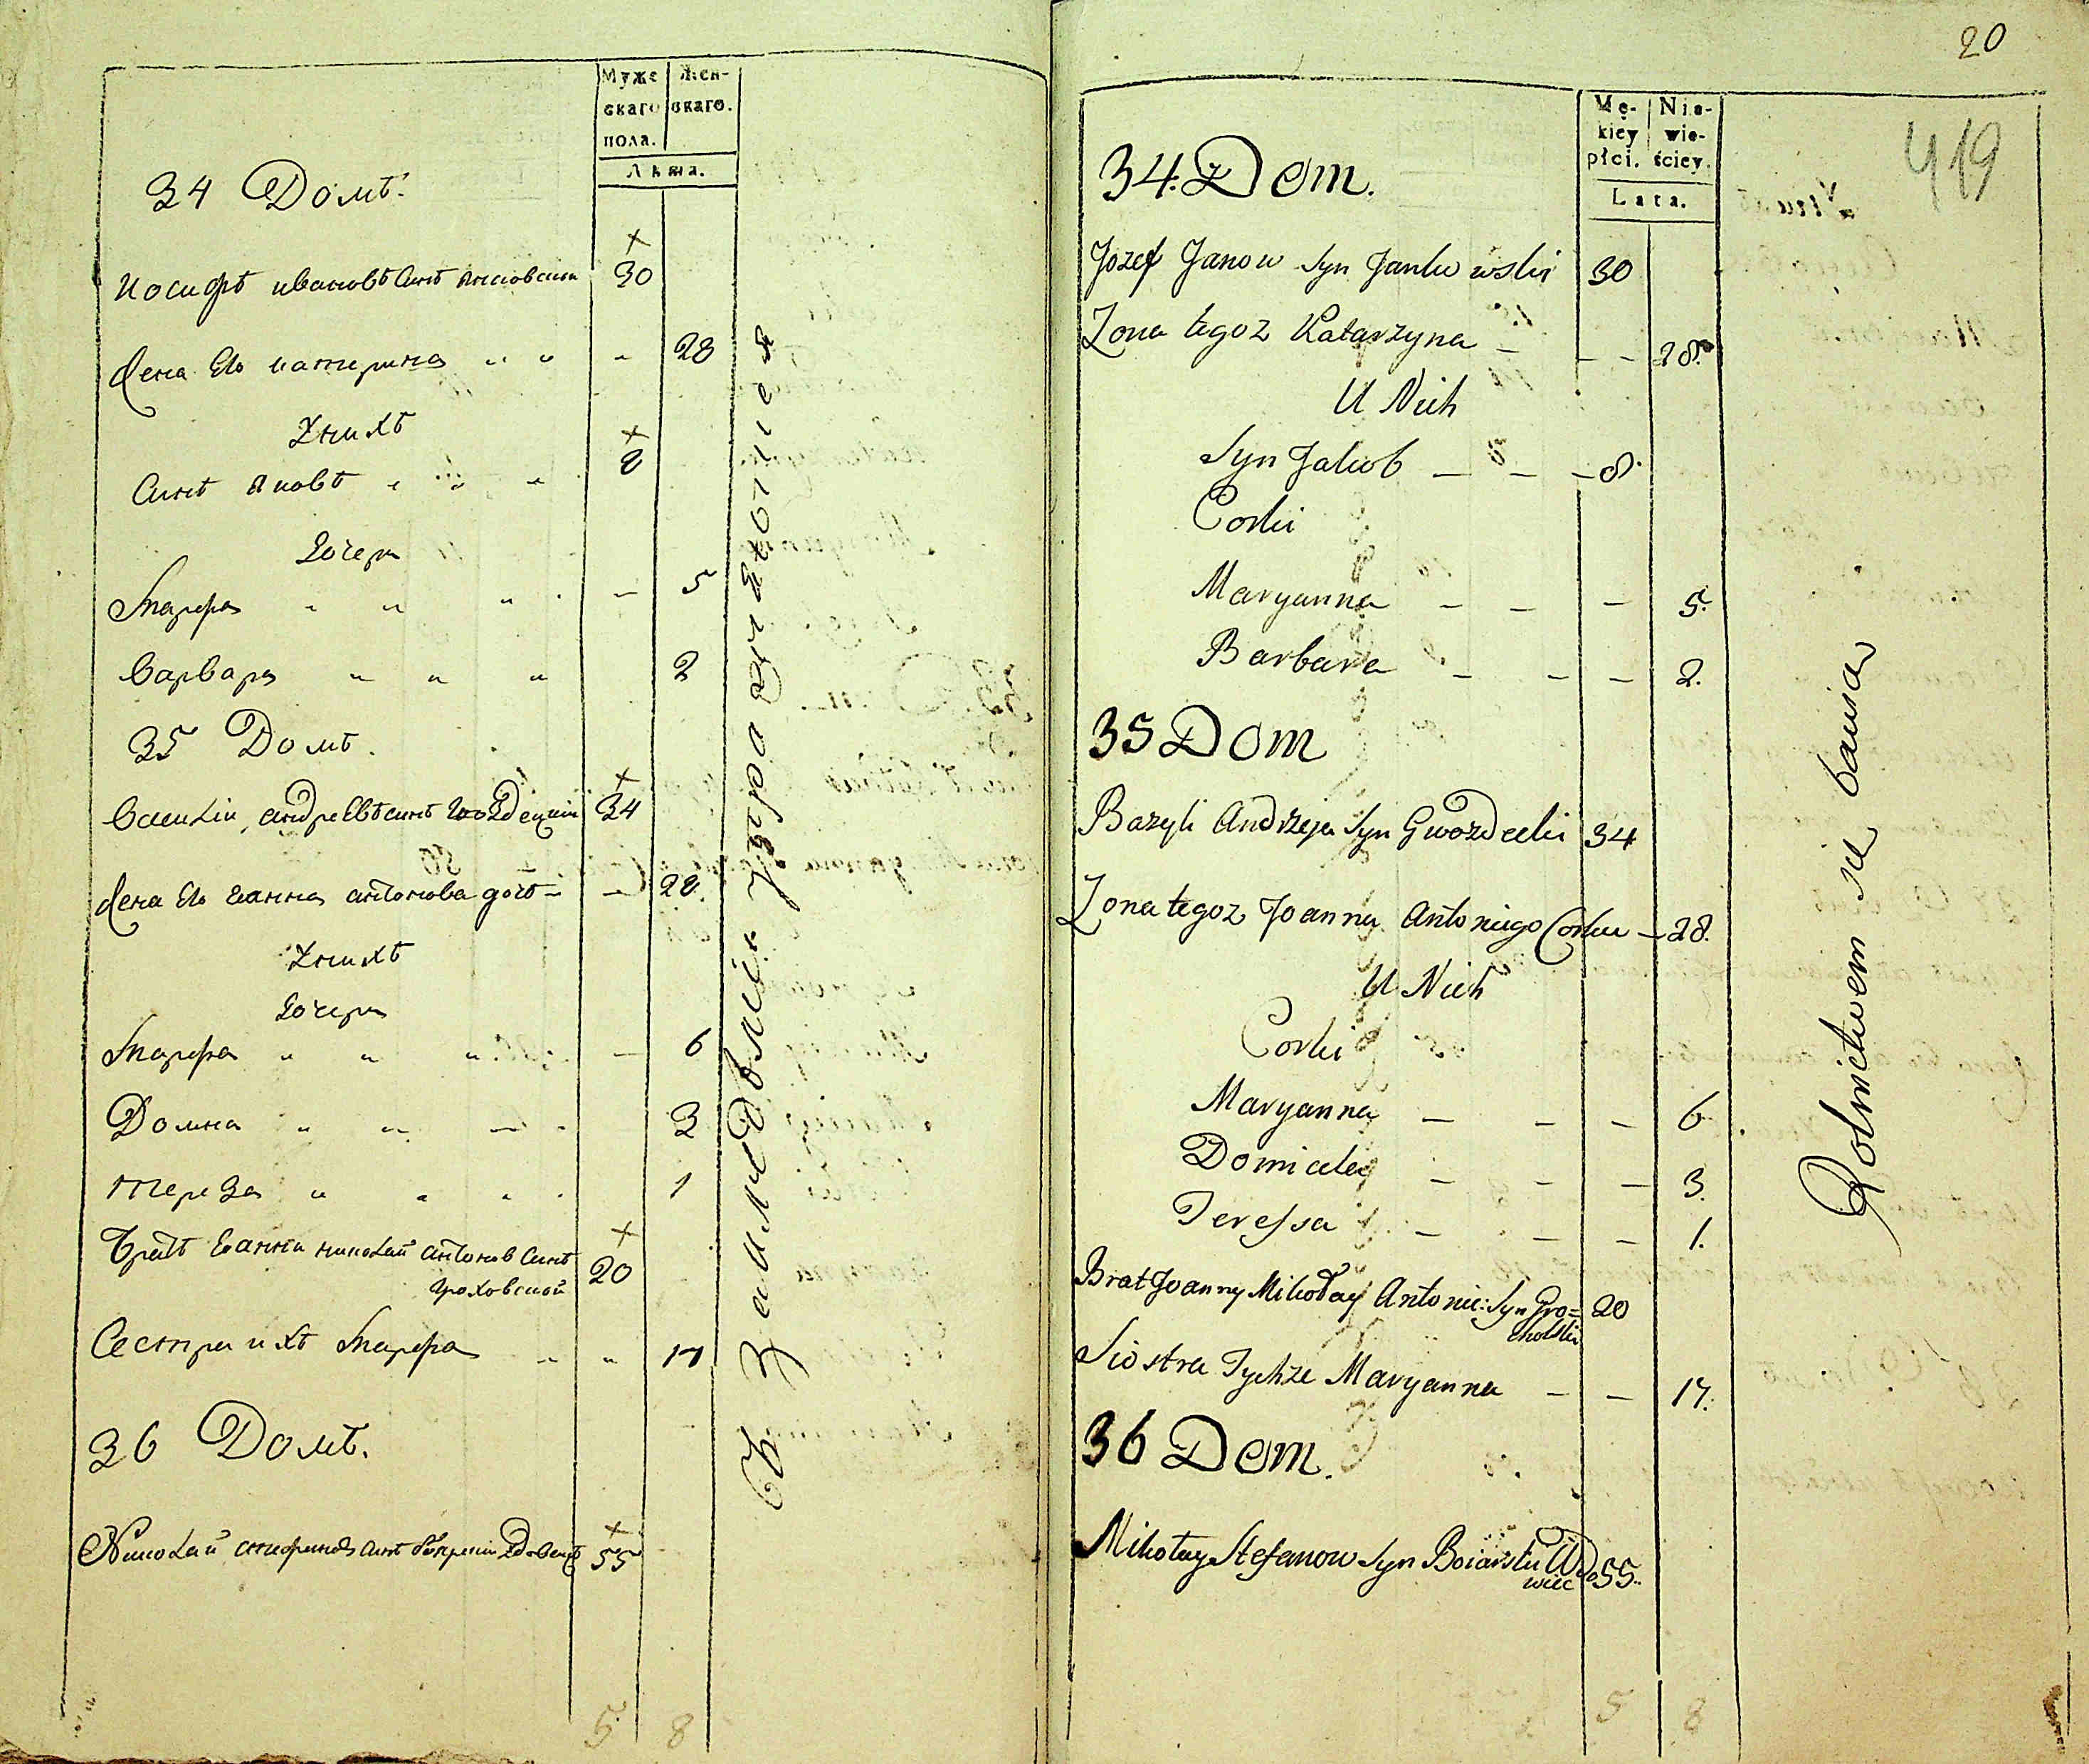 Муже
скаго
пола.
Жен-
скаго.
Лѣта.
34 Домъ.
Иосифъ ивановъ Сынъ янковски 30
Жена Его катерина " " - 28
У нихъ
Сынъ Яковъ 8
Дочери
Марфа " " " - 5
Варвара " " " 2
35 Домъ.
Василiи андреевъ сынъ 34
Жена Его Еанна антонова дочь - - 28.
У нихъ
Дочери
Марфа " " " - 6
Домна " " 3
тереза " " " 1
братъ Еанни николай антонов Синъ 20
Гроховской
Сестра ихъ Марфа " " 17
36 Домъ.
Николай стефановъ синъ Вдовецъ 55
5 8
занимаются
20
419
Mę-
kiéy
płci.
Nie-
wie-
ściey.
Lata.
34. Dom.
Jozef Janow Syn Jankowski 30
Zona tegoz Katarzyna - - - 28.
U Nich
Syn Jakob - - - 8.
Corki
Maryanna - - - 5.
Barbara - - - 2.
35 Dom
Bazyli Andrzeja Syn Gwozdecki 34
Zona tegoz Joanna Antoniego Corka - 28.
U Nich
Corki
Maryanna - - - 6
Domicela - - - 3.
Teressa - - - 1.
Brat Joanny Mikołay Antonie: Syn Gro= 20
cholski
Siostra Tychże Maryanna - - 17.
36 Dom.
Mikołay Stefanow Syn Boiarski Wdo 55.
wiec
5 8
Rolnictwem się bawia